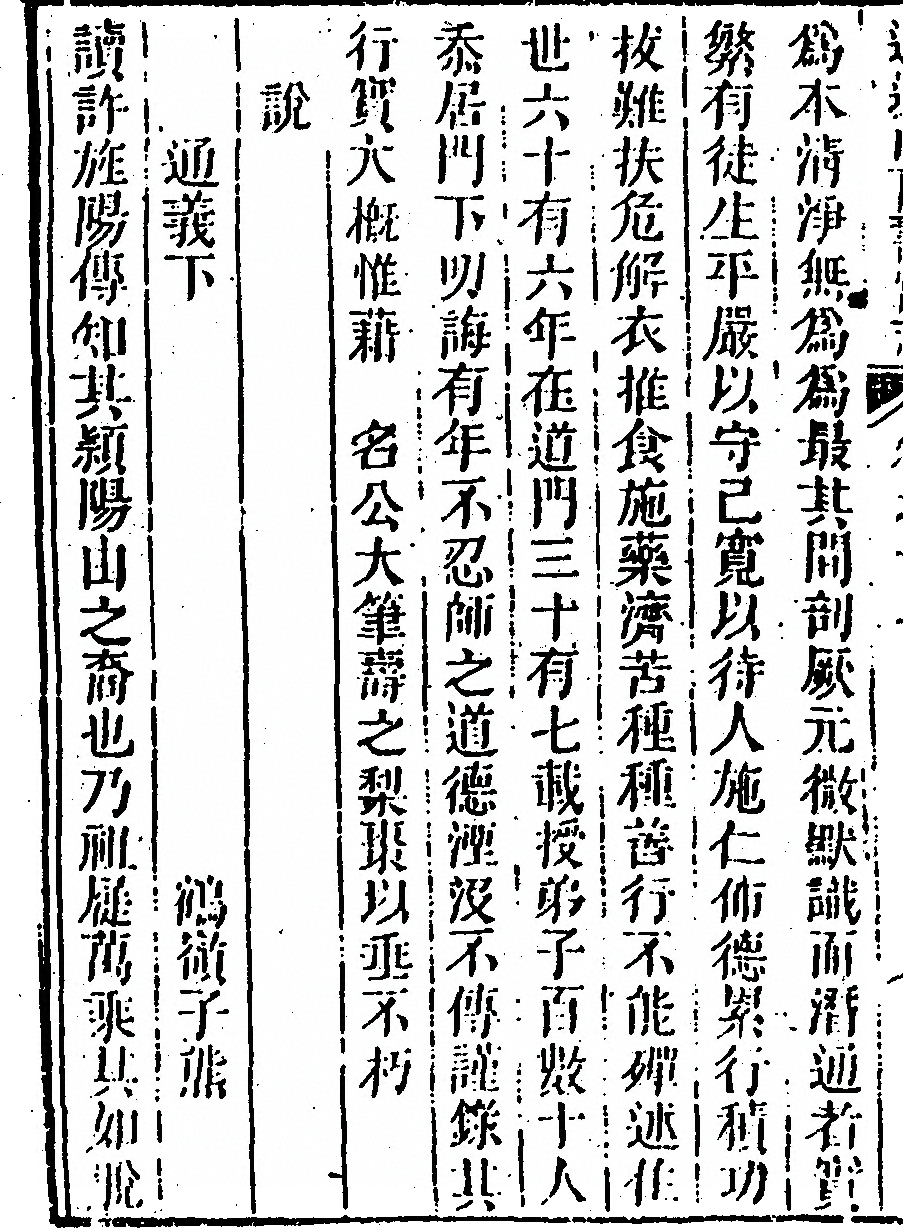 爲本清淨無爲爲最其間剖厥元微默識而潛通者實
繁有徒生平嚴以守己寬以待人施仁佈德累行積功
拔難扶危解衣推食施藥濟苦種種善行不能殫述住
世六十有六年在道門三十有七載授弟子百數十人
忝居門下叨誨有年不忍師之道德湮沒不傳謹錄其
行實大概惟藉　名公大筆壽之梨棗以垂不朽
說
通義下　鴻嶺子熊
讀許旌陽傳知其潁陽山之裔也乃祖屣萬乘其如脫